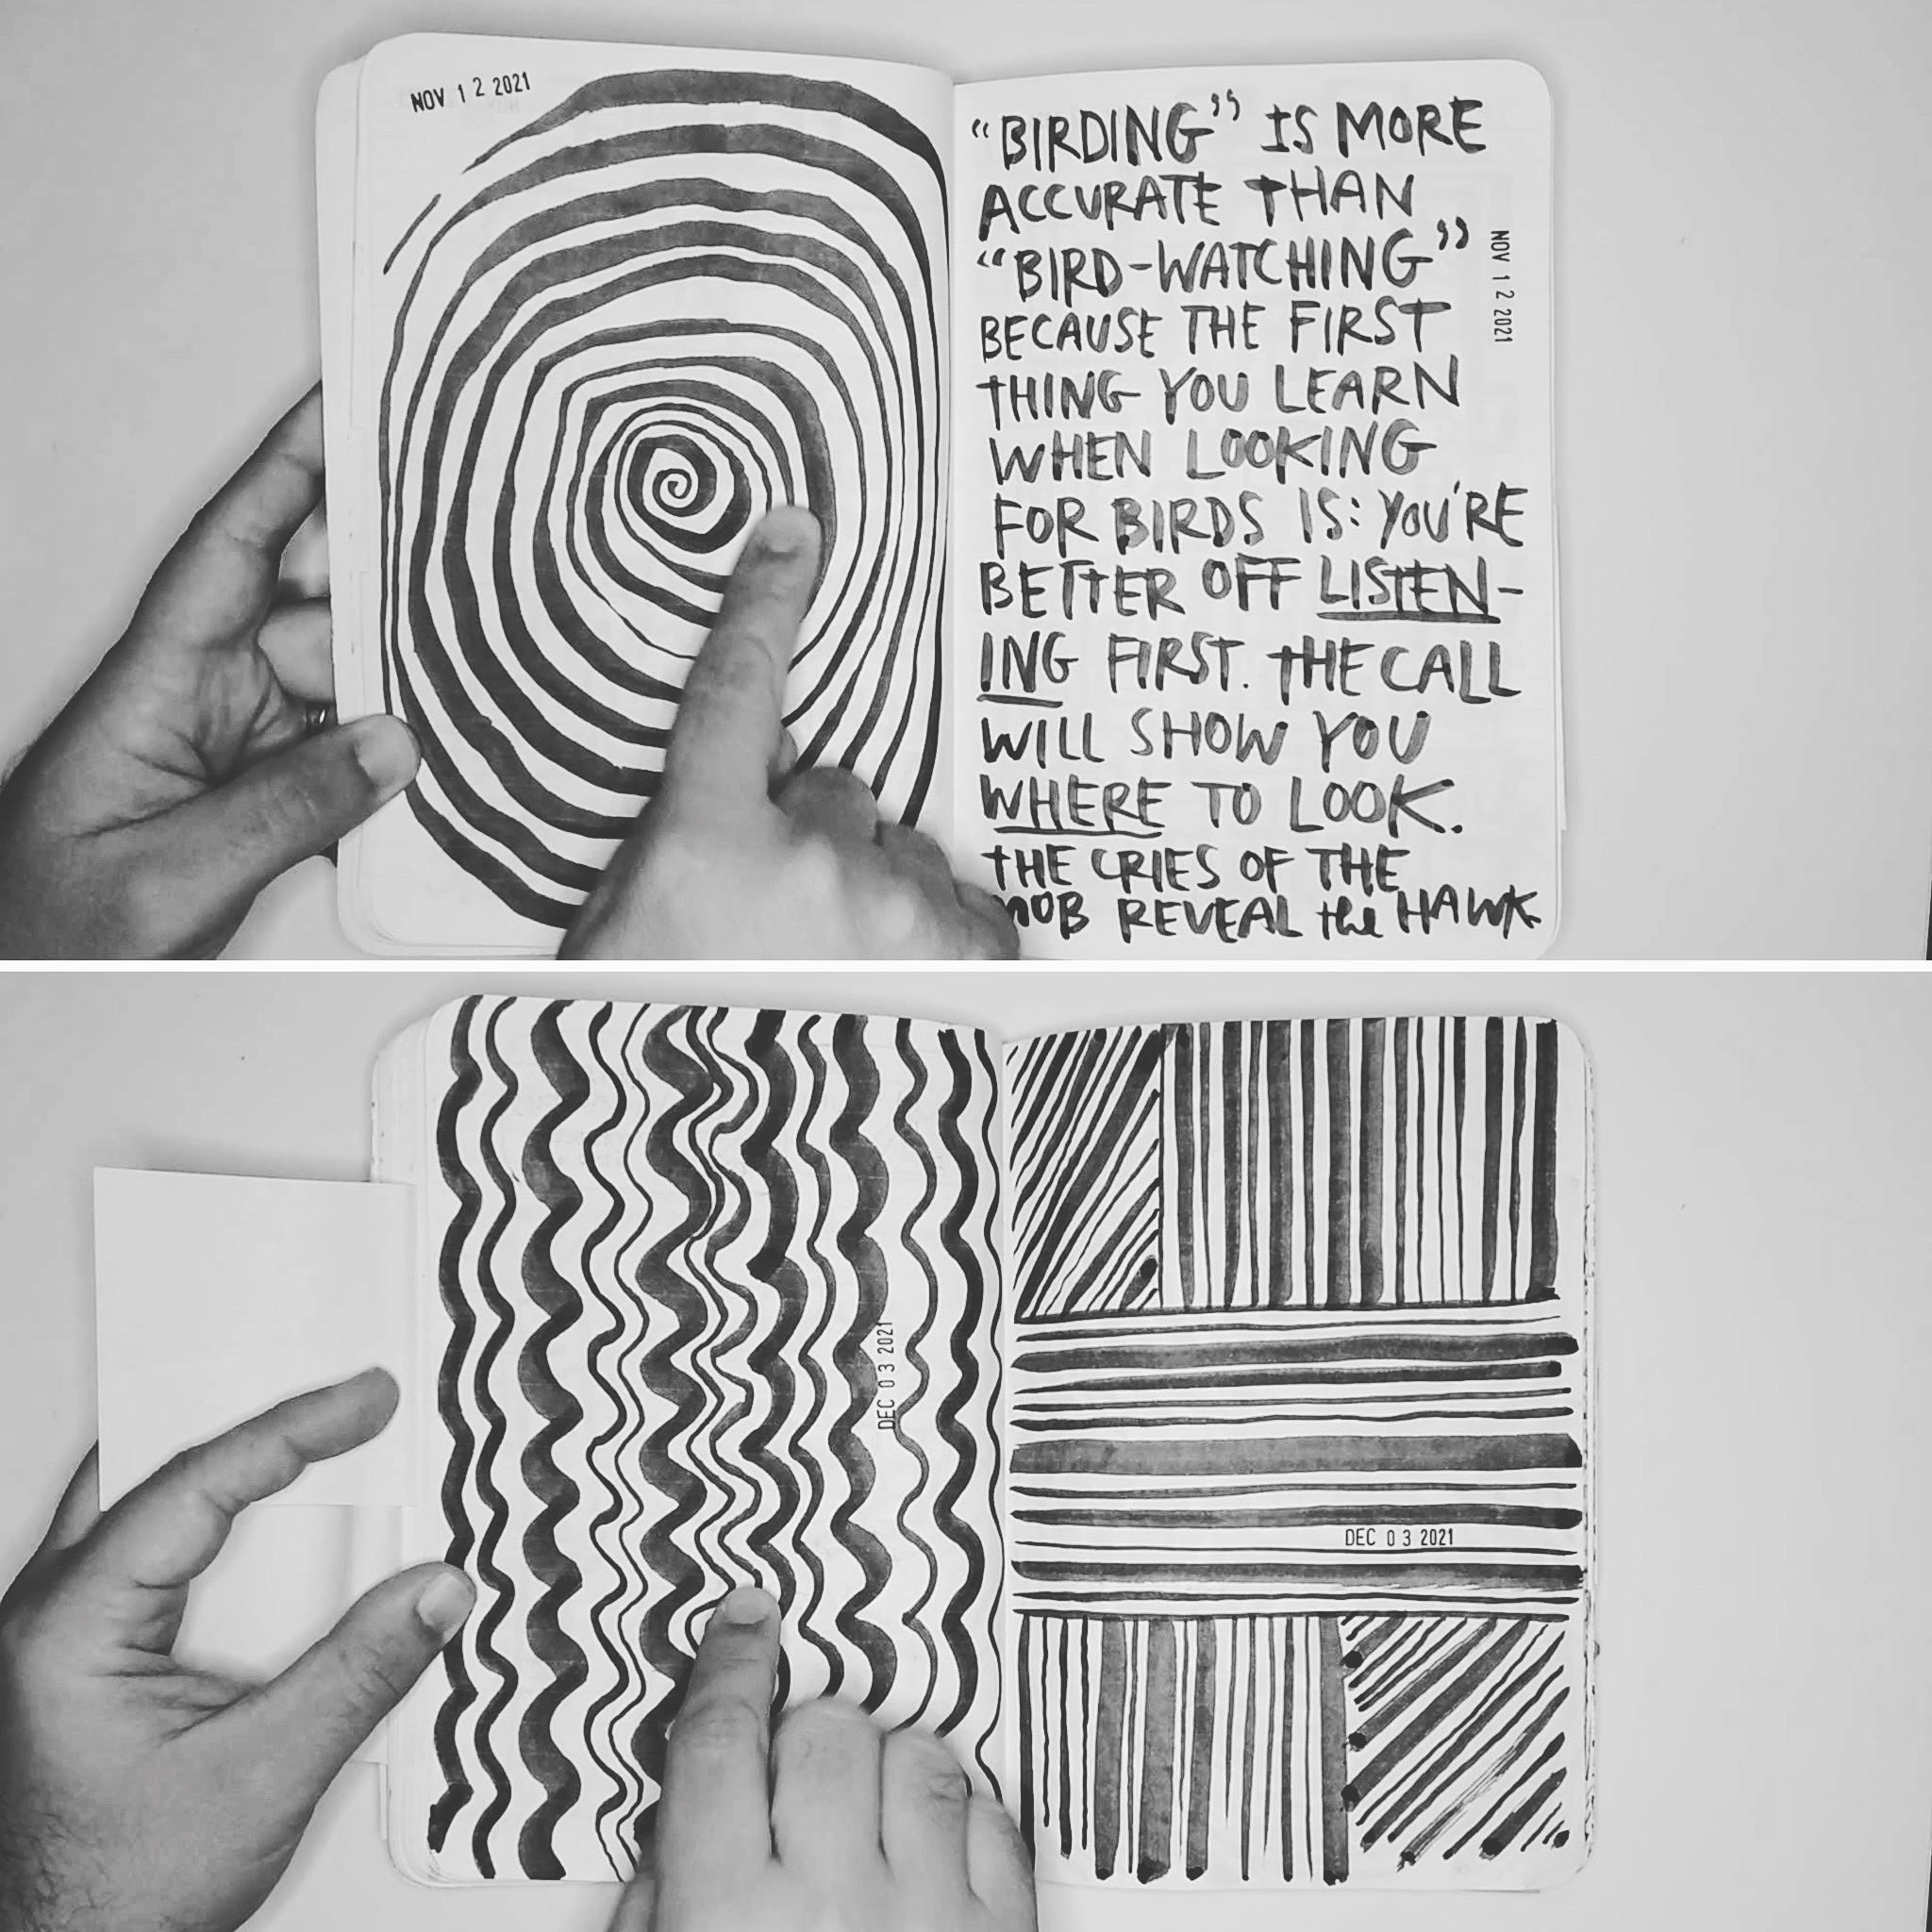 NOV 12 2021
"BIRDING" IS MORE
ACCURATE THAN
"BIRD-WATCHING"
BECAUSE THE FIRST
THING YOU LEARN
WHEN LOOKING
FOR BIRDS IS: YOU'RE
BETTER OFF LISTEN-
ING FIRST. THE CALL
WILL SHOW YOU
WHERE TO LOOK.
THE CRIES OF THE
MOB REVEAL the HAWK
NOV 12 2021
DEC 03 2021
DEC 03 2021